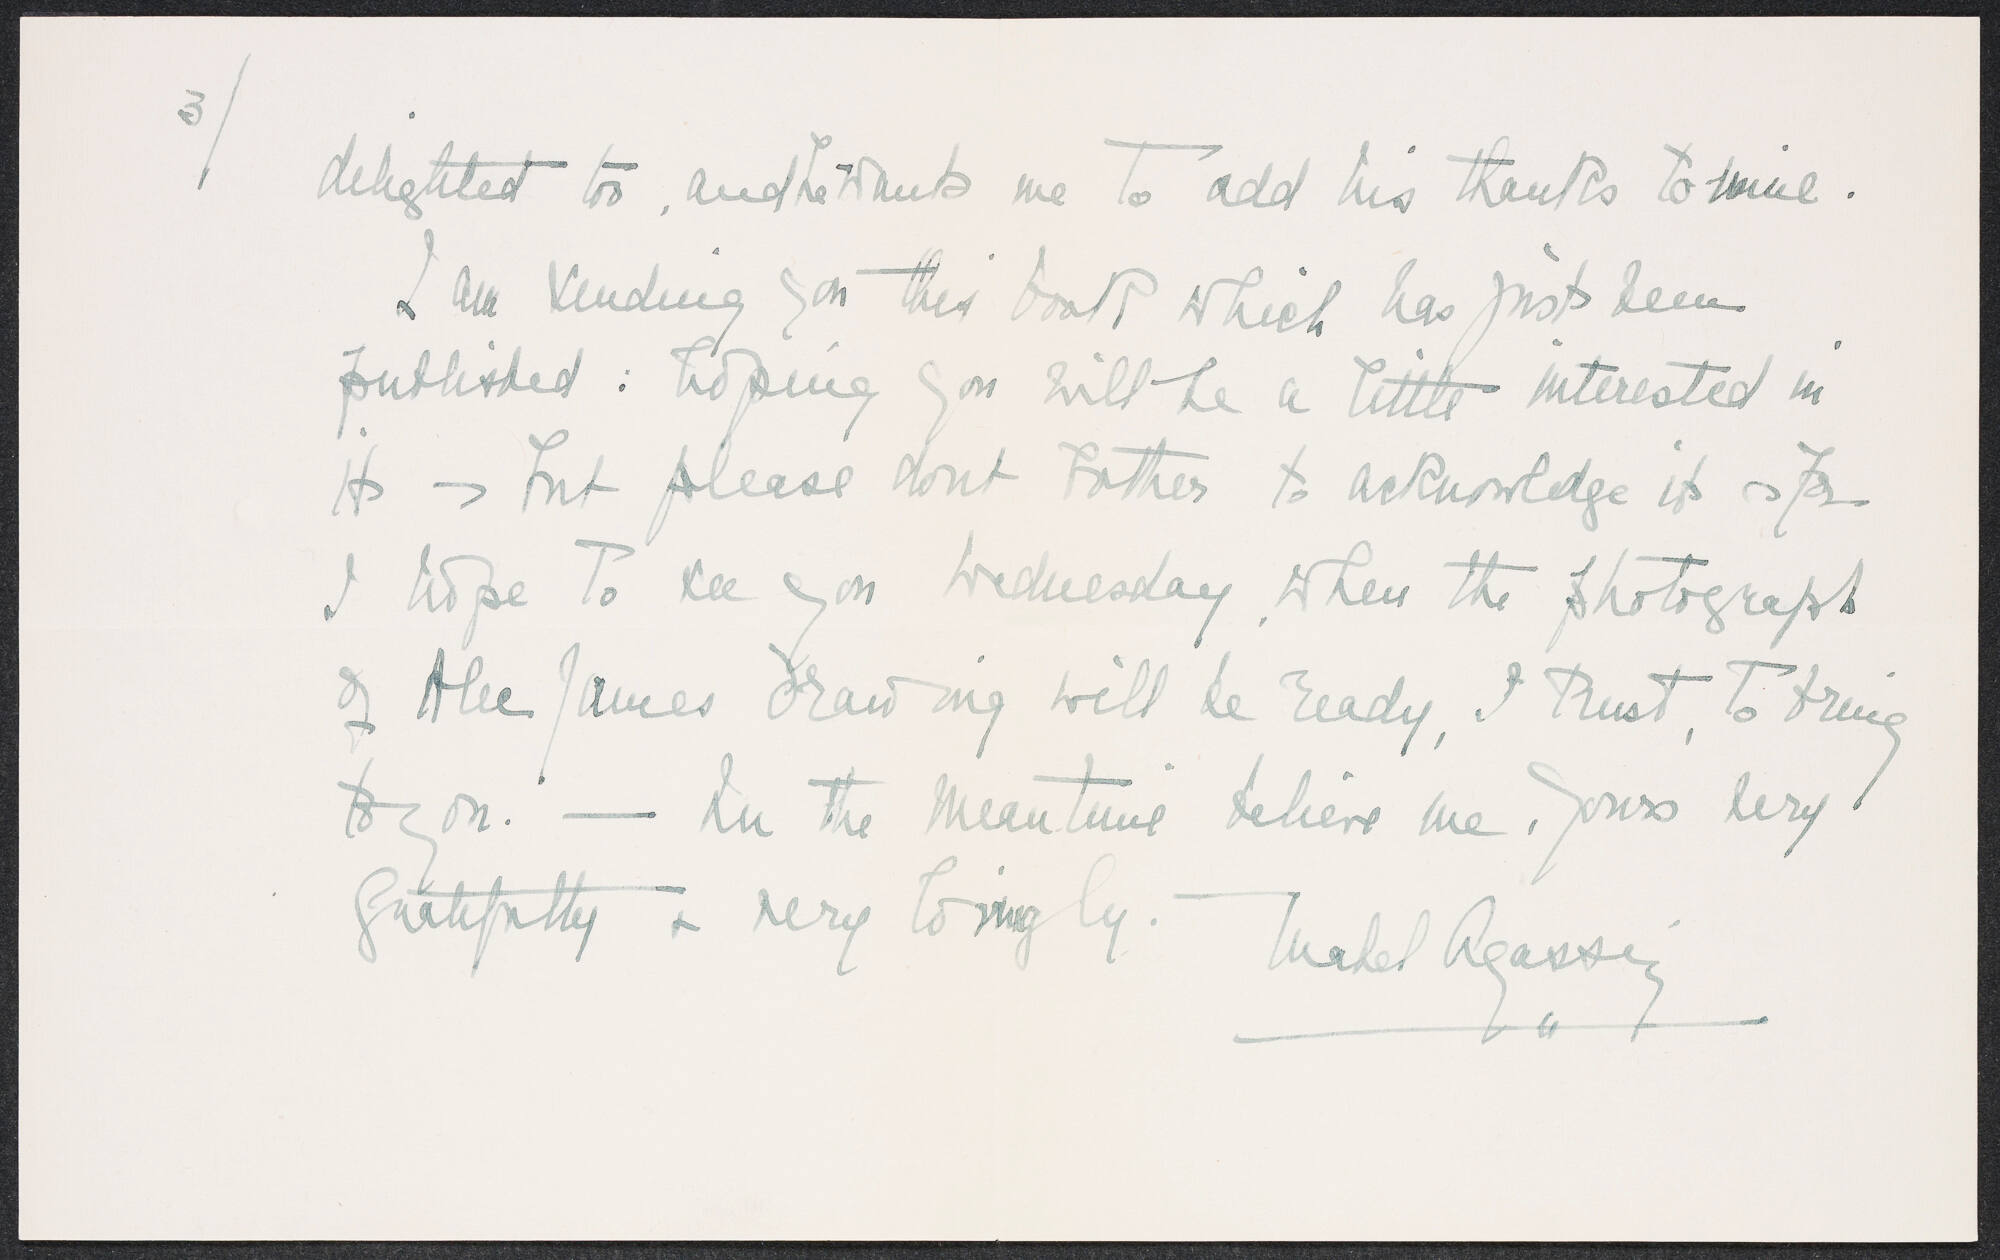 3/
delighted too, and he wants me to add his thanks to mine.
I am sending you this book which has just been
published : hoping you will be a little interested in
it – but please dont bother to acknowledge it – for
I hope to see you Wednesday, when the photograph
of Alec James drawing will be ready, I trust, to bring
to you. — In the meantime believe me, yours very
gratefully & very lovingly. — Mabel Agassiz